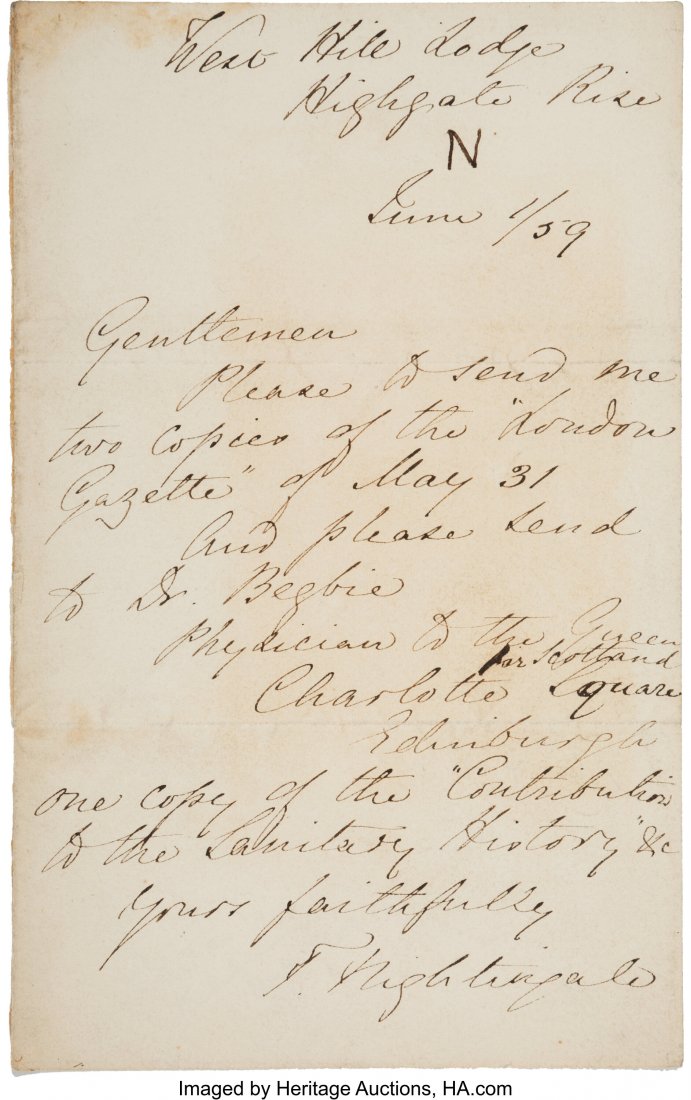 West Hill Lodge
Highgate Rise
N
June 1/59
Gentlemen
Please to send me
two copies of the "London
Gazette" of May 31
And please send
to Dr. Begbie
Physician to the Queen
for Scotland
Charlotte Square
Edinburgh
one copy of the "Contribution
to the Sanitary History" &c
Yours faithfully
F. Nightingale
Imaged by Heritage Auctions, HA.com